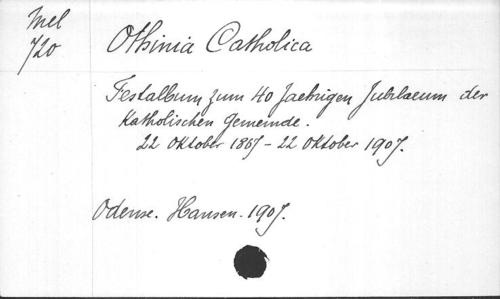 Mel
720
Othinia Catholica
Festalbum zum 40 jaehrigen Jubilaeum der
Katholischen Gemeinde.
22 Oktober 1867 - 22 Oktober 1907.
Odense. Hansen. 1907.